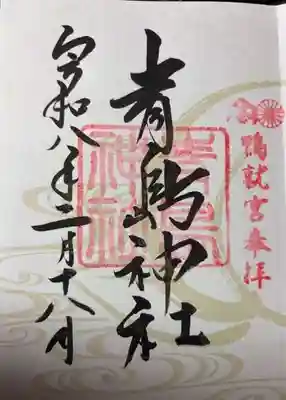 鴨就宮奉拝
青島神社
青島
神社
令和八年二月十八日